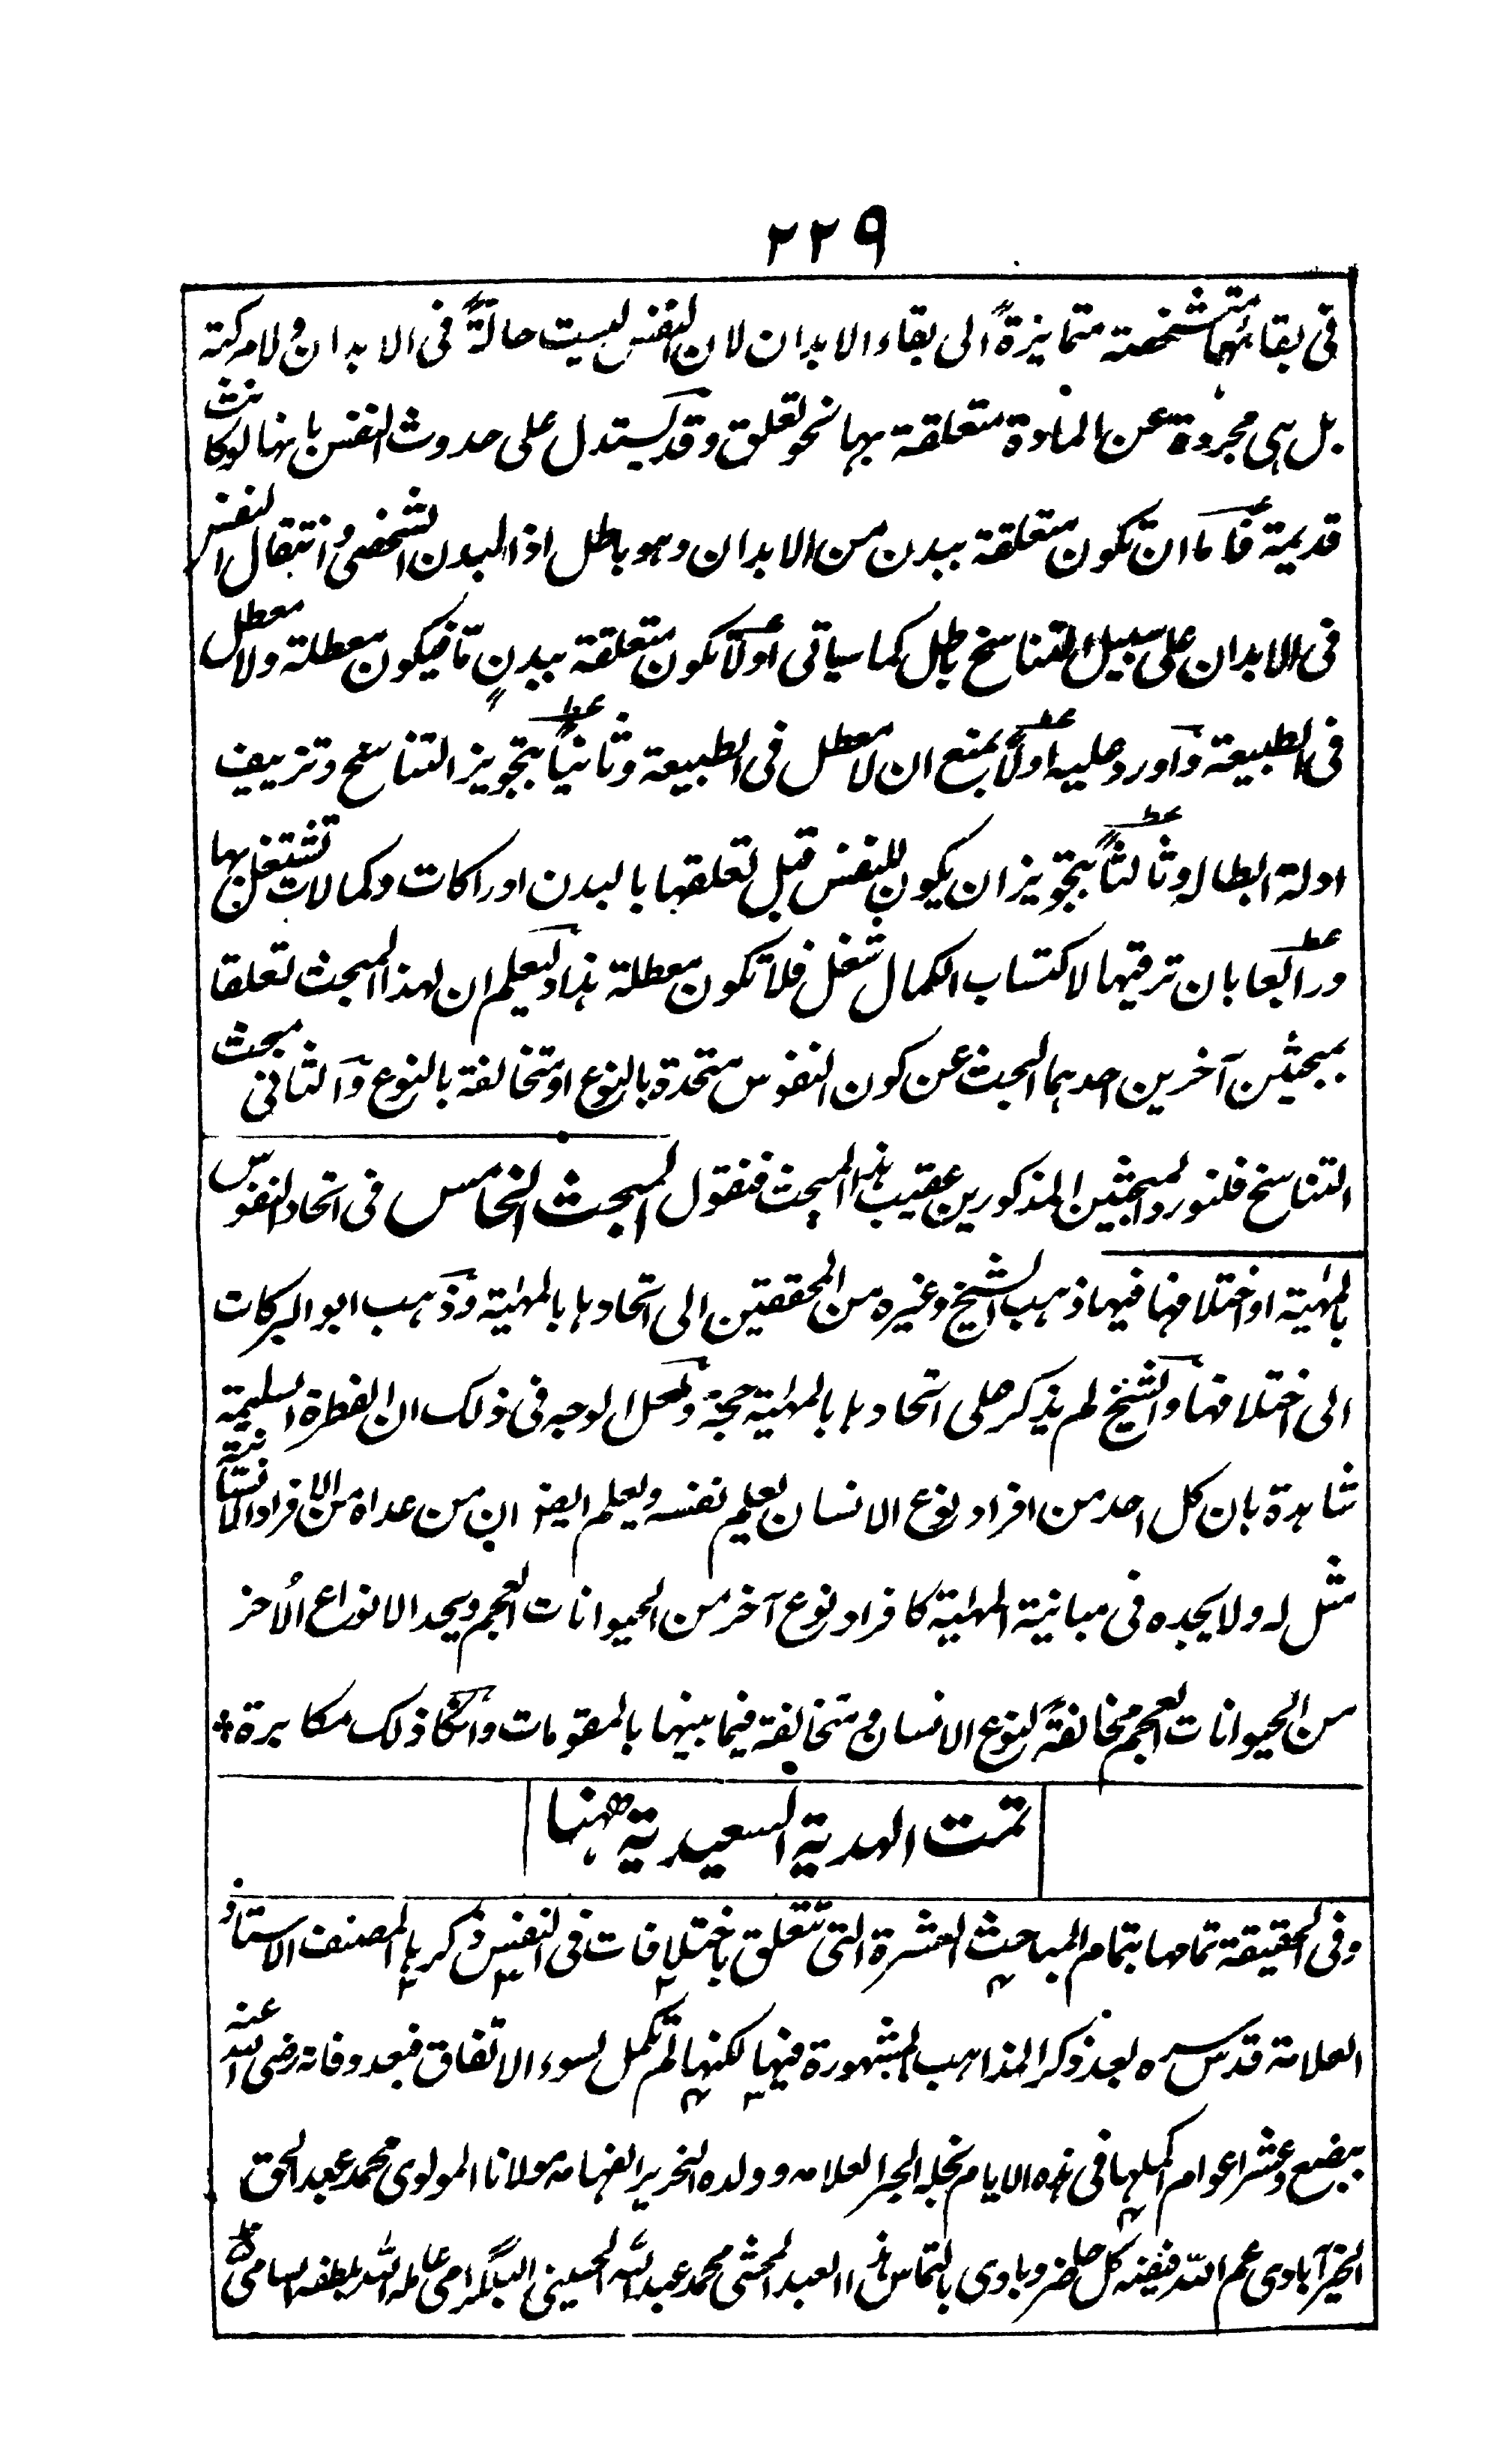 ٢٢٩
فى بقائها متشخصة متمايزة الى بقاء الابدان لان النفس ليست حالة فى الابدان ولا مركبة
بل هى مجردة عن المادة متعلقة بها نحو تعلق وقد يستدل على حدوث النفس بانها لو كانت
قديمة فاما ان تكون متعلقة ببدن من الابدان وهو باطل اذ البدن الشخصى وانتقال النفس
فى الابدان على سبيل التناسخ باطل كما سياتى اولا تكون متعلقة ببدن ما فيكون معطلة ولا معطل
فى الطبيعة واورد عليه اولا بمنع ان لا معطل فى الطبيعة وثانيا بتجويز التناسخ وتزييف
ادلة ابطاله وثالثا بتجويز ان يكون للنفس قبل تعلقها بالبدن ادراكات وكمالات تشتغل بها
ورابعا بان ترقيها لاكتساب الكمال شغل فلا تكون معطلة هذا وليعلم ان لهذا المبحث تعلقا
بمبحثين آخرين احدهما البحث عن كون النفوس متحدة بالنوع او متخالفة بالنوع والثانى مبحث
التناسخ فلنورد المبحثين المذكورين عقيب هذا المبحث فنقول المبحث الخامس فى اتحاد النفوس
بالمهية او اختلافها فيها ذهب الشيخ وغيره من المحققين الى اتحادها بالمهية وذهب ابو البركات
الى اختلافها والشيخ لم يذكر على اتحادها بالمهية حجة ولعل الوجه فى ذلك ان الفطرة السليمة
شاهدة بان كل احد من افراد نوع الانسان يعلم نفسه ويعلم ايضا ان من عداه من الافراد الانسانية
مثل له ولا يجده فى مباينة المهية كافراد نوع آخر من الحيوانات العجم ويجد الانواع الأخر
من الحيوانات العجم مخالفة لنوع الانسان متخالفة فيما بينها بالمقومات وانكار ذلك مكابرة
تمت الهدية السعيدية ههنا
وفى الحقيقة تمامها بتمام المباحث العشرة التى تتعلق باختلافات فى النفس ذكرها المصنف الاستاذ
العلامة قدس سره بعد ذكر المذاهب المشهورة فيها لكنها لم تكمل لسوء الاتفاق فبعد وفاته رضى الله عنه
ببضع وعشر اعوام اكملها فى هذه الايام نجله الحبر العلامه وولده النحرير الفهامه مولانا المولوى محمد عبد الحق
الخيرآبادى عم الله فيضه كل حاضر وبادى بالتماس هذا العبد المحشى محمد عبد الله الحسينى البلگرامى عامله الله بلطفه السامى